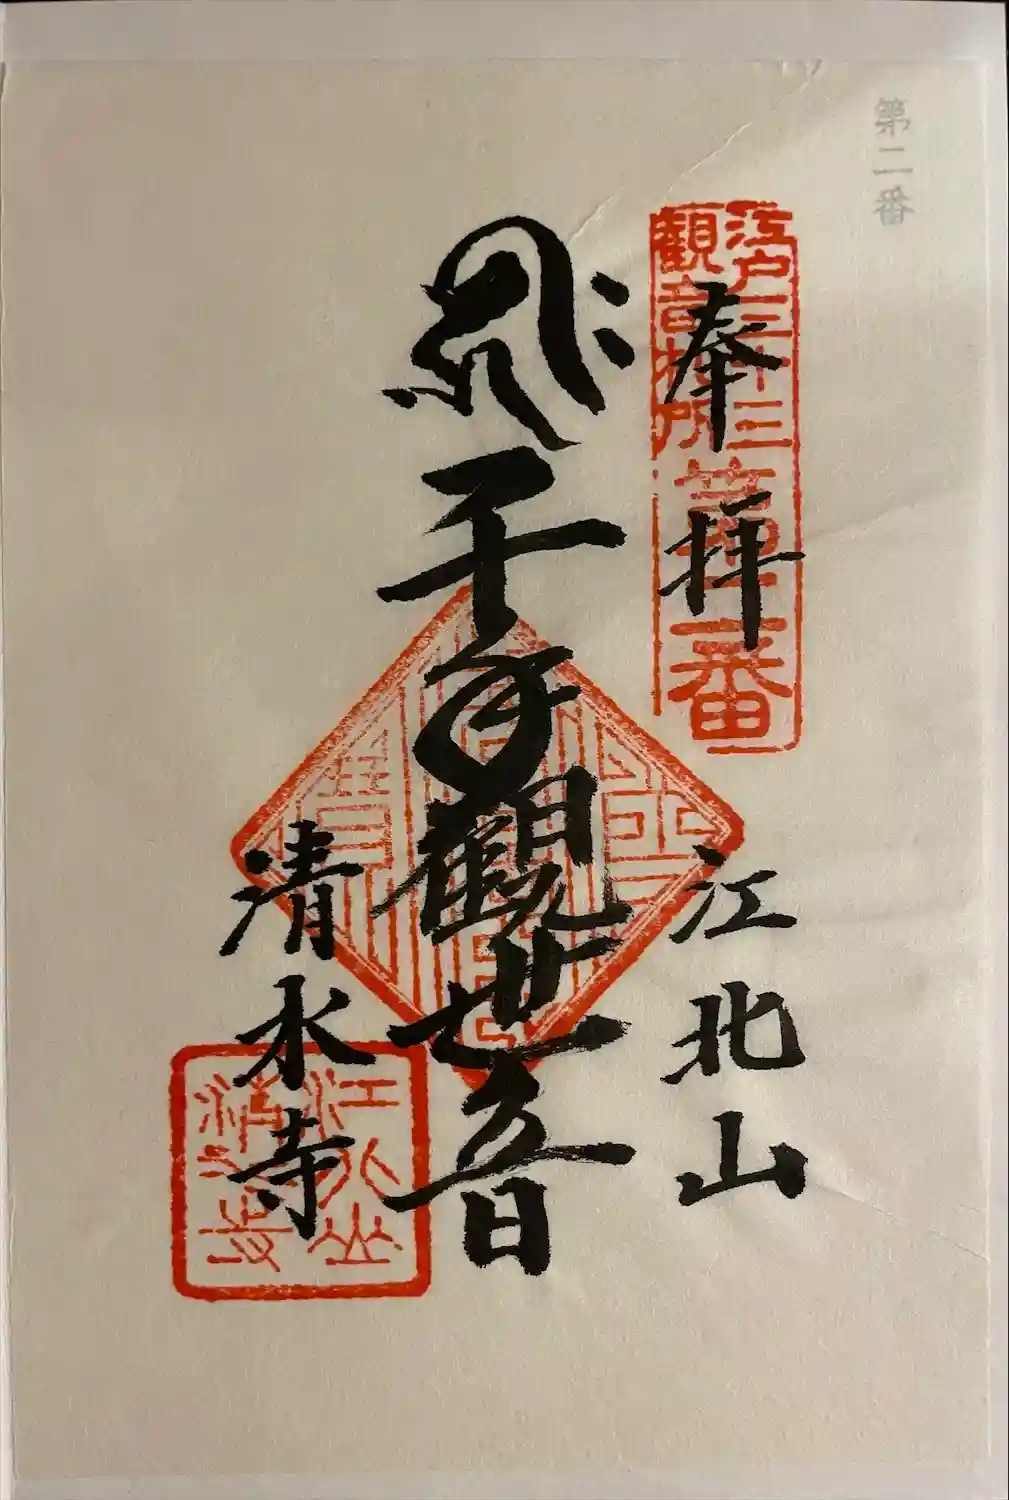 第二番
江戸三十三
観音札所
第二番
奉拝
江北山
千手觀世音
清水寺
江北山
清水寺